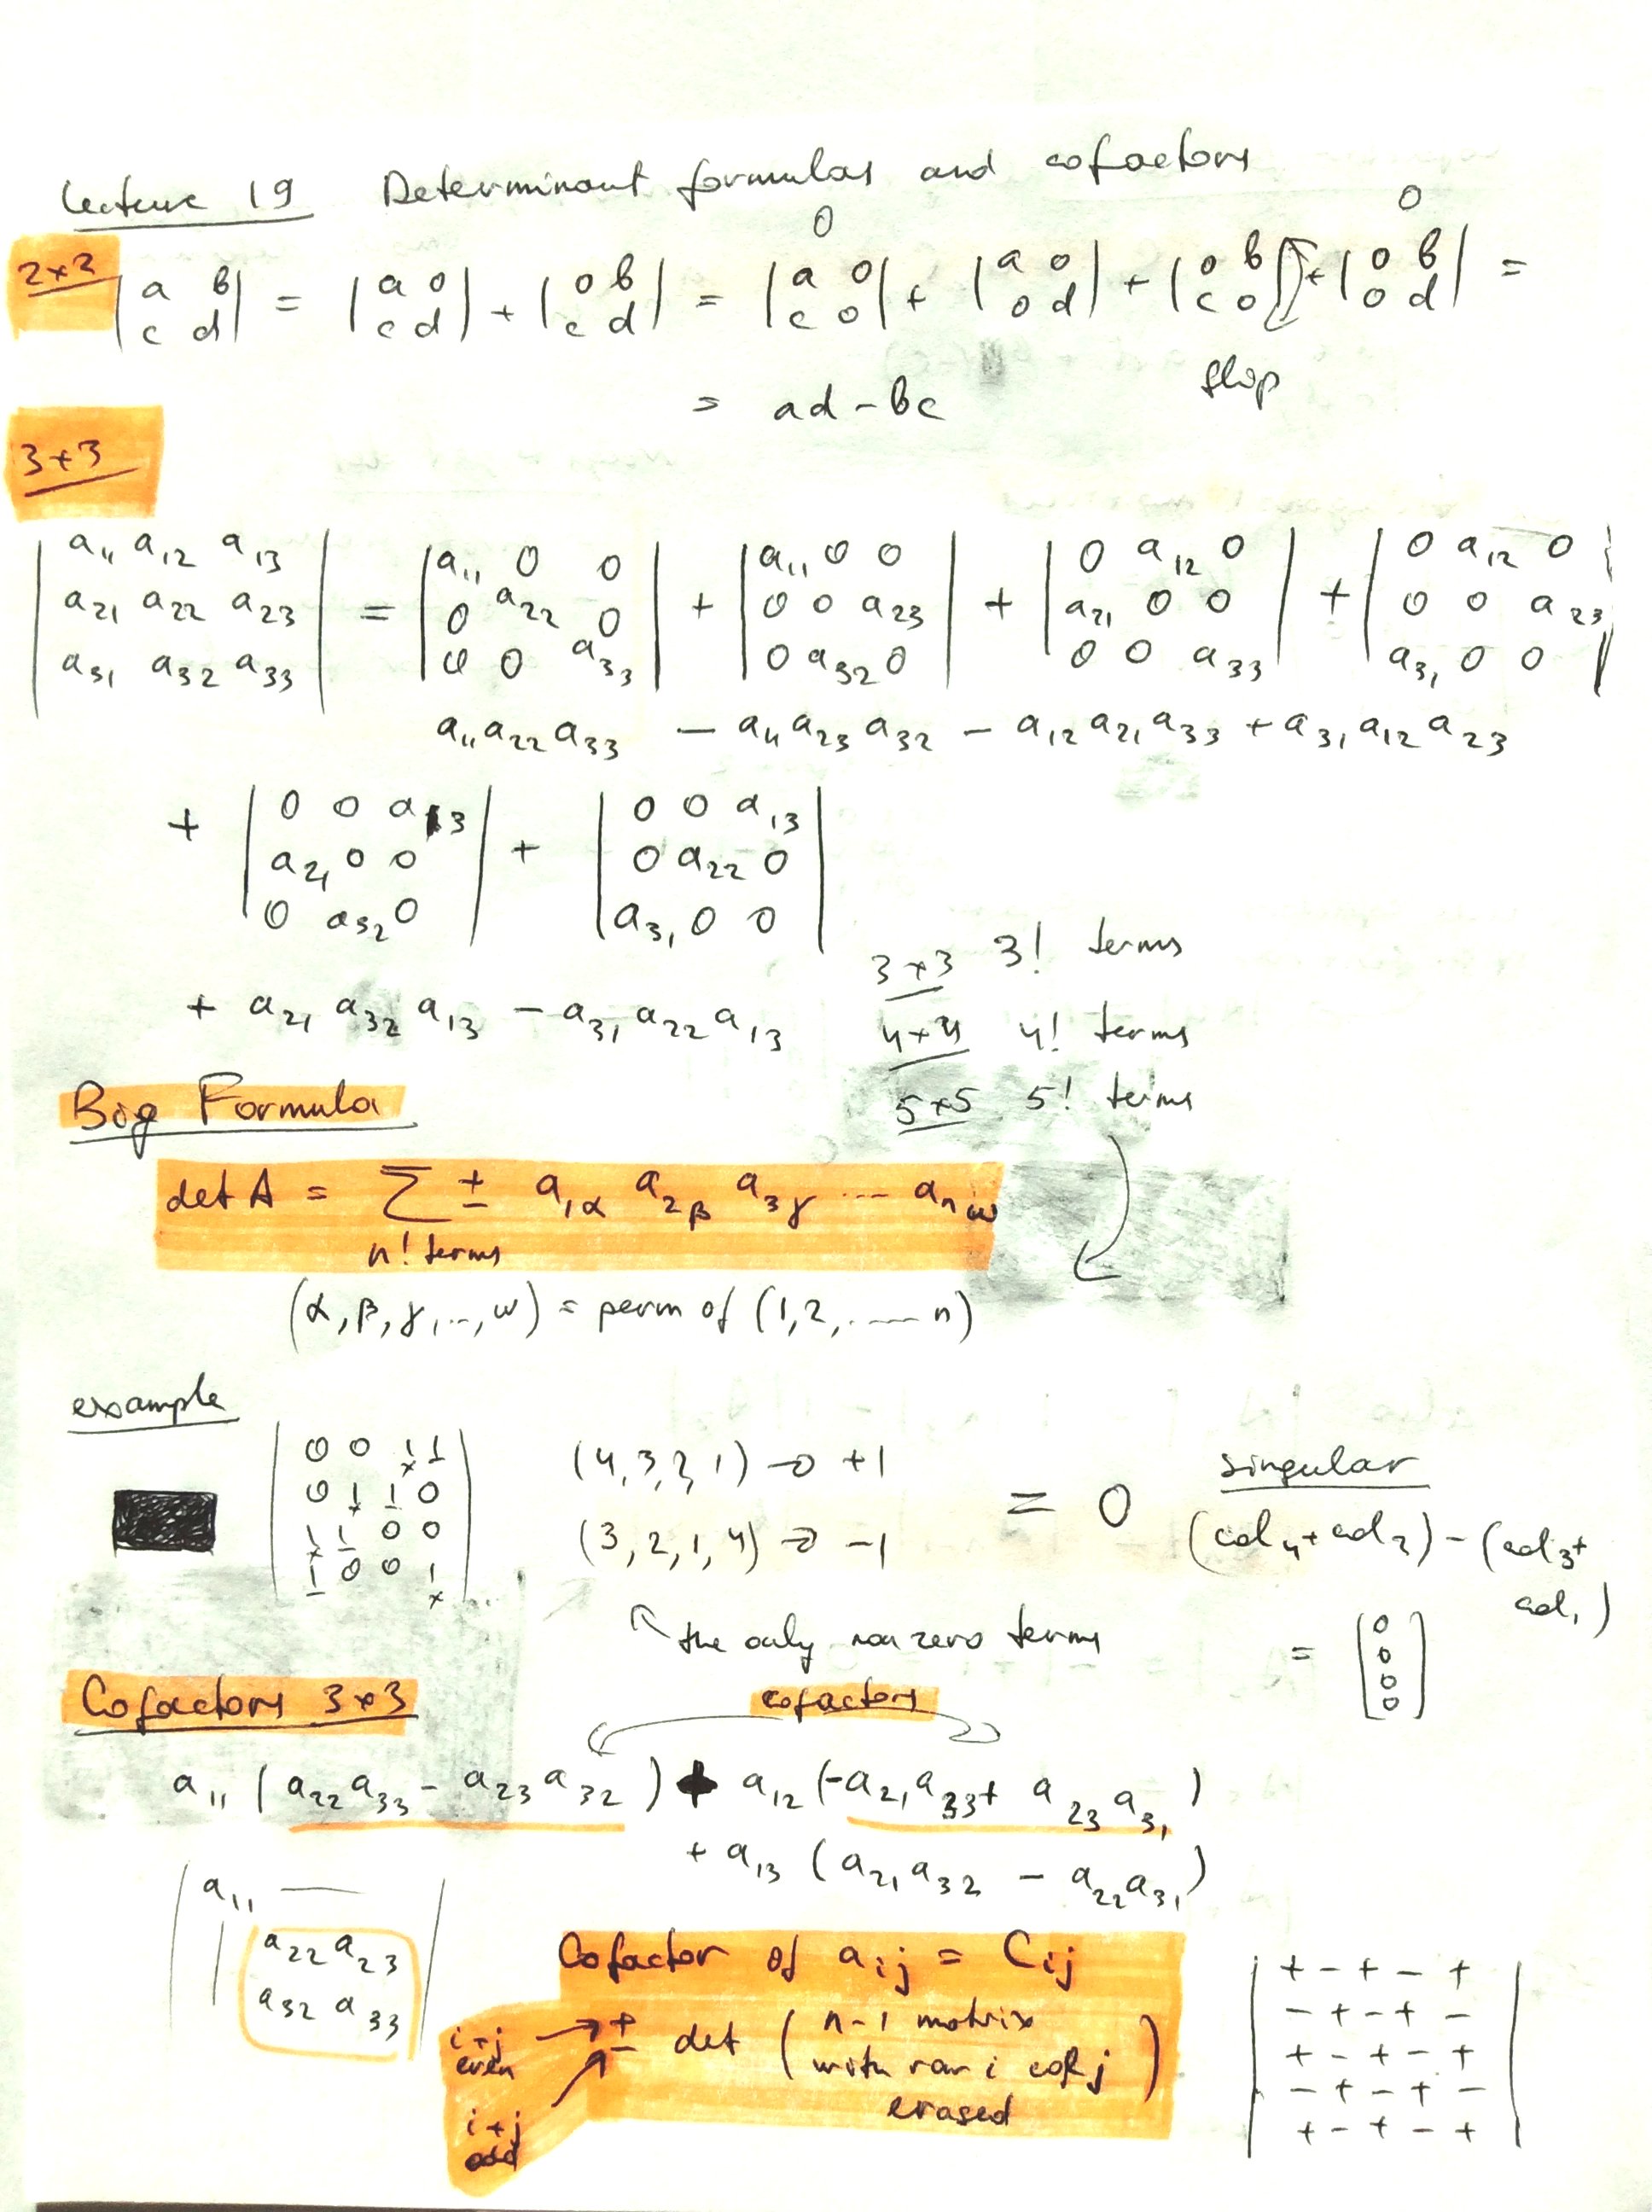 Lecture 19 Determinant formulas and cofactors
2×2
0 0
|a b; c d| = |a 0; c d| + |0 b; c d| = |a 0; c 0| + |a 0; 0 d| + |0 b; c 0| + |0 b; 0 d| =
flip
= ad - bc
3×3
|a11 a12 a13; a21 a22 a23; a31 a32 a33| = |a11 0 0; 0 a22 0; 0 0 a33| + |a11 0 0; 0 0 a23; 0 a32 0| + |0 a12 0; a21 0 0; 0 0 a33| + |0 a12 0; 0 0 a23; a31 0 0|
a11 a22 a33 - a11 a23 a32 - a12 a21 a33 + a31 a12 a23
+ |0 0 a13; a21 0 0; 0 a32 0| + |0 0 a13; 0 a22 0; a31 0 0|
+ a21 a32 a13 - a31 a22 a13
3×3 3! terms
4×4 4! terms
5×5 5! terms
Big Formula
det A = Σ ± a1α a2β a3γ ... anω
n! terms
(α, β, γ, .., ω) = perm of (1, 2, ..... n)
example
|0 0 1 1; 0 1 1 0; 1 1 0 0; 1 0 0 1|
(4, 3, 2, 1) → +1
(3, 2, 1, 4) → -1
= 0
singular
(col4 + col2) - (col3 + col1)
= [0 0 0 0]
the only non zero terms
Cofactors 3×3
cofactors
a11 (a22 a33 - a23 a32) + a12 (-a21 a33 + a23 a31)
+ a13 (a21 a32 - a22 a31)
a11
a22 a23
a32 a33
Cofactor of aij = Cij
i+j even
± det (n-1 matrix with row i col j erased)
i+j odd
+ - + - +
- + - + -
+ - + - +
- + - + -
+ - + - +